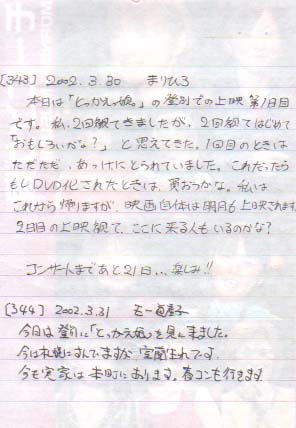 [343] 2002.3.30 まりひろ
本日は「とっかえっ娘。」の登別での上映第1日目
です。私、2回観てきましたが、2回観てはじめて
「おもしろいかな?」と思えてきた。1回目のときは
ただただ、あっけにとられていました。これだったら
もしDVD化されたときは、買おっかな。私は
これから帰りますが、映画自体は明日も上映されます。
2日目の上映観て、ここに来る人もいるのかな?
コンサートまであと21日...楽しみ!!
[344] 2002.3.31
今日は登別に「とっかえっ娘」を見に来ました。
今は札幌にすんでますが室蘭生まれです。
今も実家は本町にあります。春コンも行きます